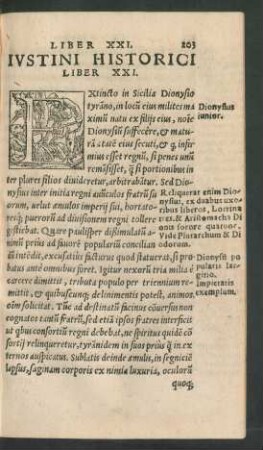 LIBER XXI. 203
IVSTINI HISTORICI
LIBER XXI.
EXtincto in Sicilia Dionysio
tyrāno, in locū eius milites ma
ximū natu ex filijs eius, noīe
Dionysiū suffecêre, & matu-
râ ætatē eius secuti, & q̄ fir-
mius esset regnū, si penes unū
remāsisset, q̄ si portionibus in
ter plures filios diuideretur, arbitrabātur. Sed Dio-
nysius inter initia regni auūculos fratrū sua
rum, uelut æmulos imperij sui, hortato-
resq; puerorū ad diuisionem regni tollere
gestiebat. Quare paulisper dissimulatū ani
mū prius ad fauorē popularium concilian
dū intēdit, excusatius facturus quod statuerat, si pro-
batus ante omnibus foret. Igitur nexorū tria milia è
carcere dimittit, tributa populo per triennium re-
mittit, & quibuscunq; delinimentis potest, animos
oīm solicitat. Tūc ad destinatū facinus cōuersus non
cognatos tantū fratrū, sed etiā ipsos fratres interficit
ut qbus consortiū regni debebat, ne spiritus quidē cō
sortiū relinqueretur, tyrānidem in suos prius q̄ in ex
ternos auspicatus. Sublatis deinde æmulis, in segniciē
lapsus, saginam corporis ex nimia luxuria, oculorū
quoq;
Dionysius
iunior.
Reliquerat enim Dio-
nysius, ex duabus uxo-
ribus liberos, Locrina
&
Aristomacha Di
onis sorore quatuor,
Vide Plutarchum & Di
odorum.
Dionysii po
pularis lar-
gitio.
Impietatis
exemplum.